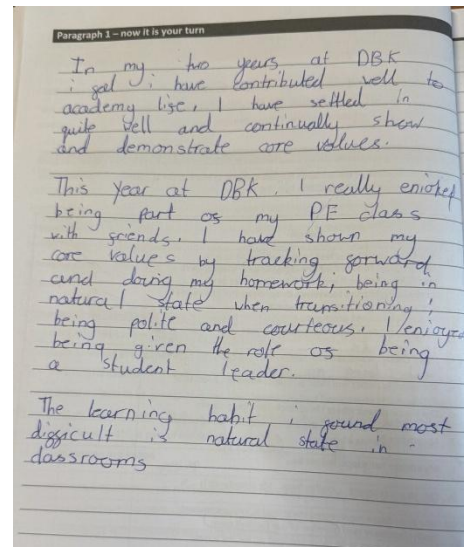 Paragraph 1 – now it is your turn
In my two years at DBK
i geel i have contributed well to
academy lige, I have settled in
quite well and continually show
and demonstrate core values.
This Year at DBK. I really enjoyed
being part og my PE class
with griends. I have shown my
core values by tracking gorward
and doing my homework, being in
natural state when transitioning,
being polite and courteous. I enjoyed
being given the role og being
a student leader.
The learning habit i gound most
diggicult is natural state in
classrooms